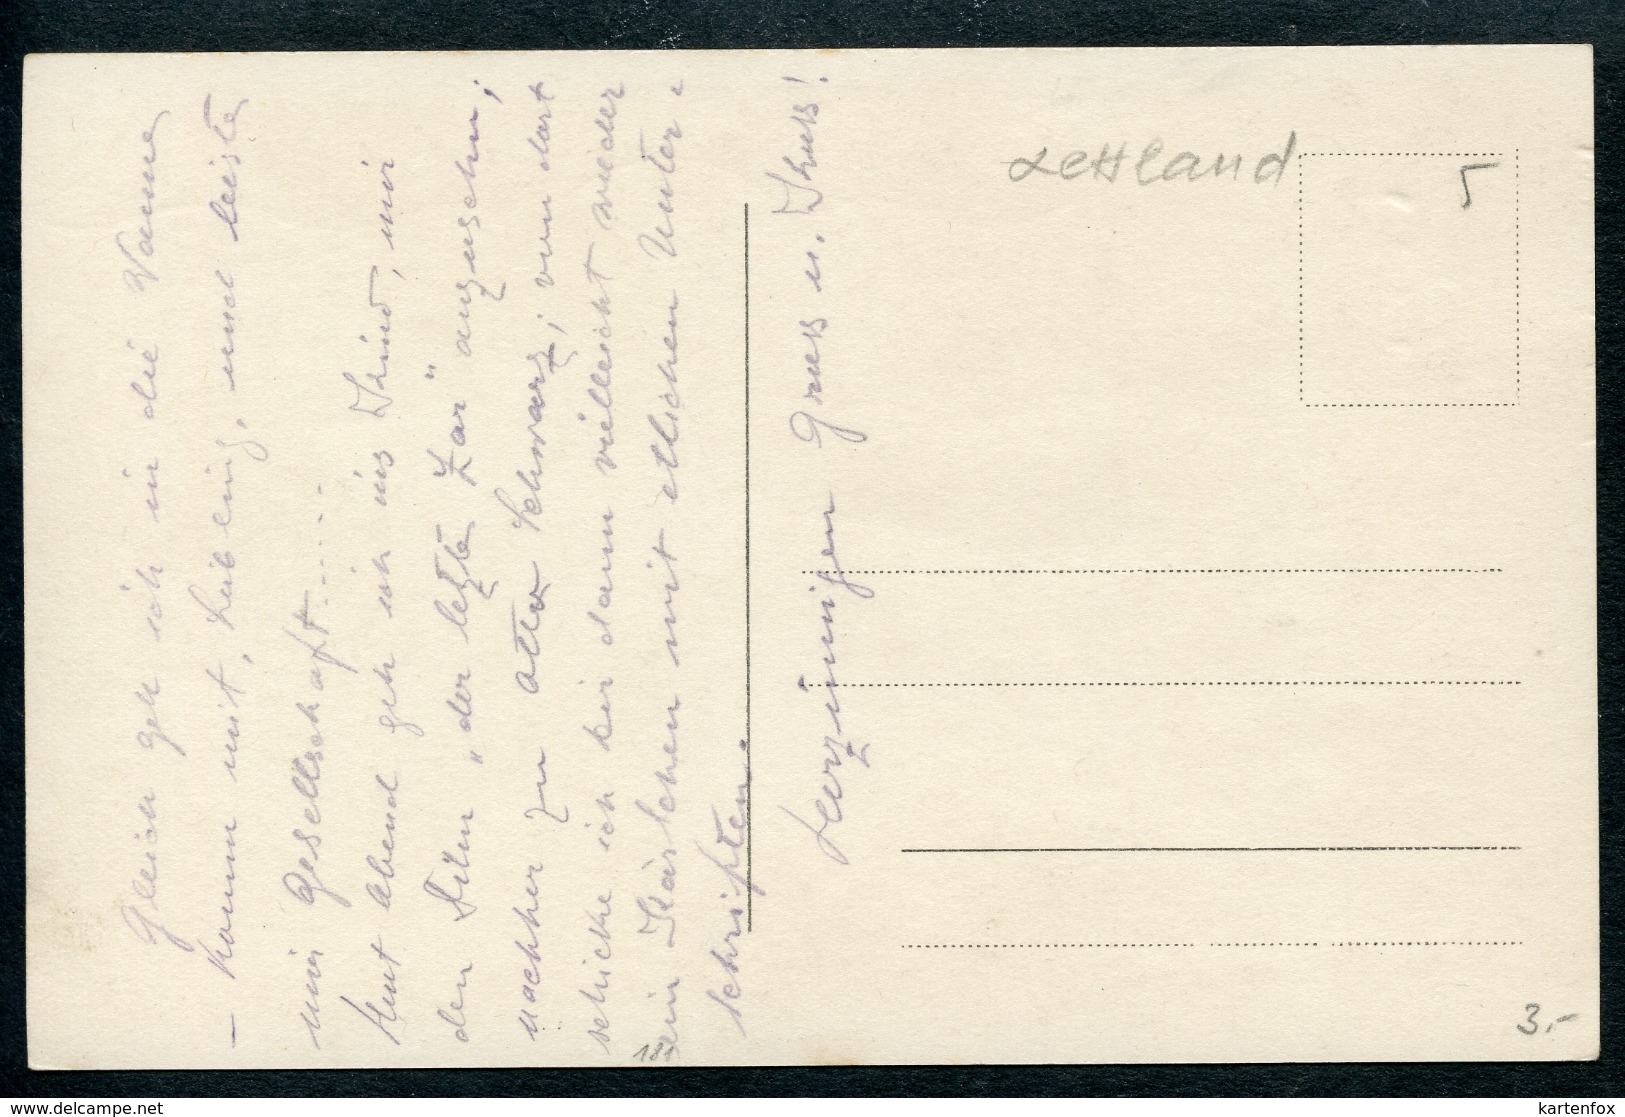 Gleich geh ich in die Wanne
– komm mit, Liebling, und leiste
mir Gesellschaft.....
Heut Abend geh ich ins Kino, mir
den Film „der letzte Zar" anzusehn;
nachher zu Otto Schwarz; von dort
schicke ich dir dann vielleicht wieder
ein Kärtchen mit etlichen Unter-
schriften.
Herzinnigen Gruss u. Kuss!
Lettland
5
3.-
kartenfox
www.delcampe.net